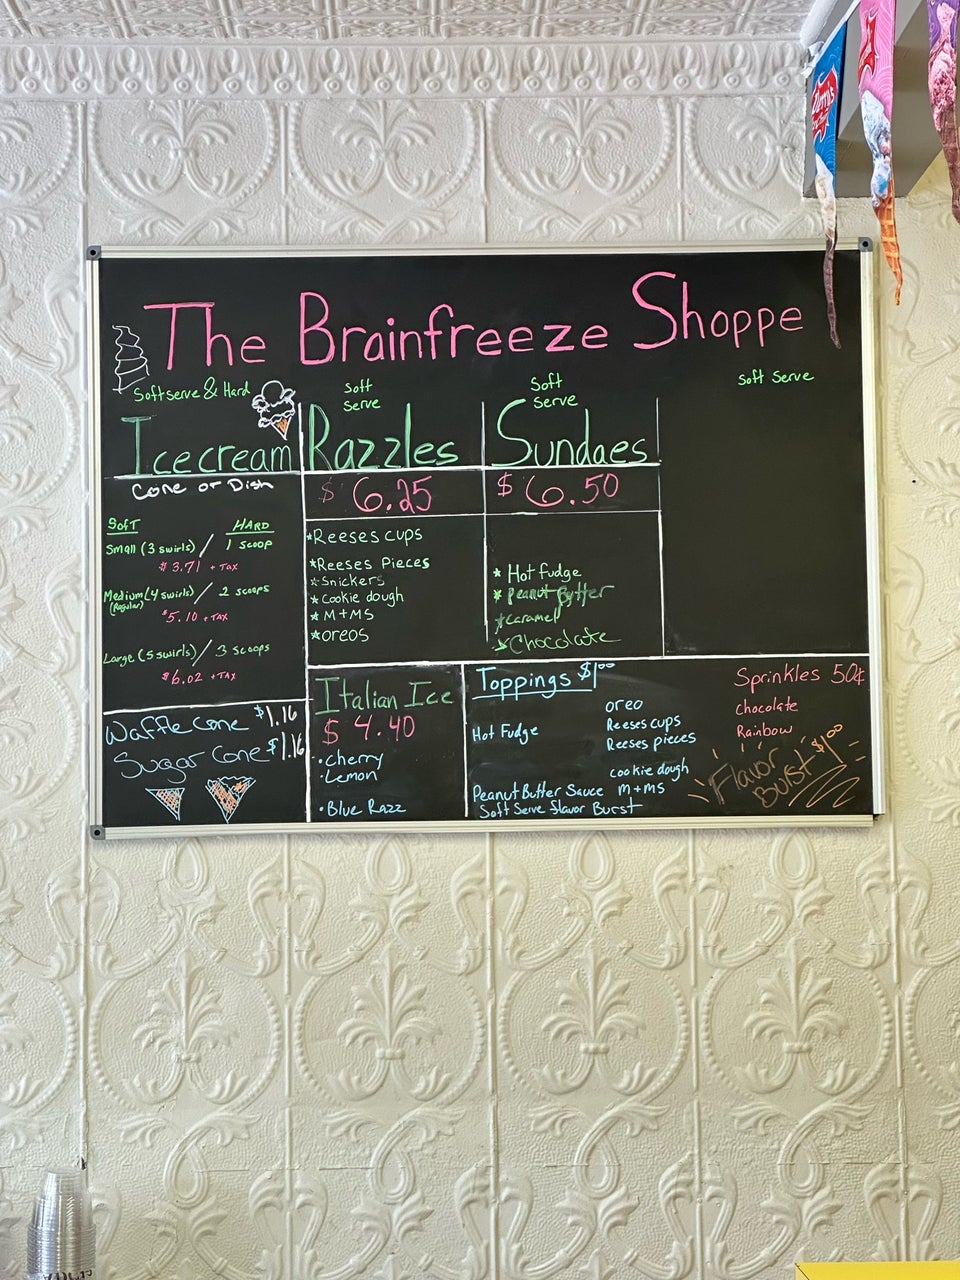 The Brainfreeze Shoppe
Softserve & Hard
Icecream
Cone or Dish
Soft
Hard
Small (3 swirls) / 1 scoop
$3.71 + TAX
Medium (4 swirls) / 2 scoops
(Regular)
$5.10 + TAX
Large (5 swirls) / 3 scoops
$6.02 + TAX
Waffle Cone $1.16
Sugar Cone $1.16
Soft
Serve
Razzles
$6.25
*Reeses cups
*Reeses Pieces
*Snickers
*Cookie dough
*M+MS
*oreos
Soft
Serve
Sundaes
$6.50
*Hot fudge
*Peanut Butter
*Caramel
*Chocolate
Soft Serve
Italian Ice
$4.40
•Cherry
•Lemon
•Blue Razz
Toppings $1.00
Hot Fudge
Peanut Butter Sauce
Soft Serve flavor Burst
oreo
Reeses cups
Reeses pieces
cookie dough
M+MS
Sprinkles 50¢
chocolate
Rainbow
Flavor
Burst $1.00